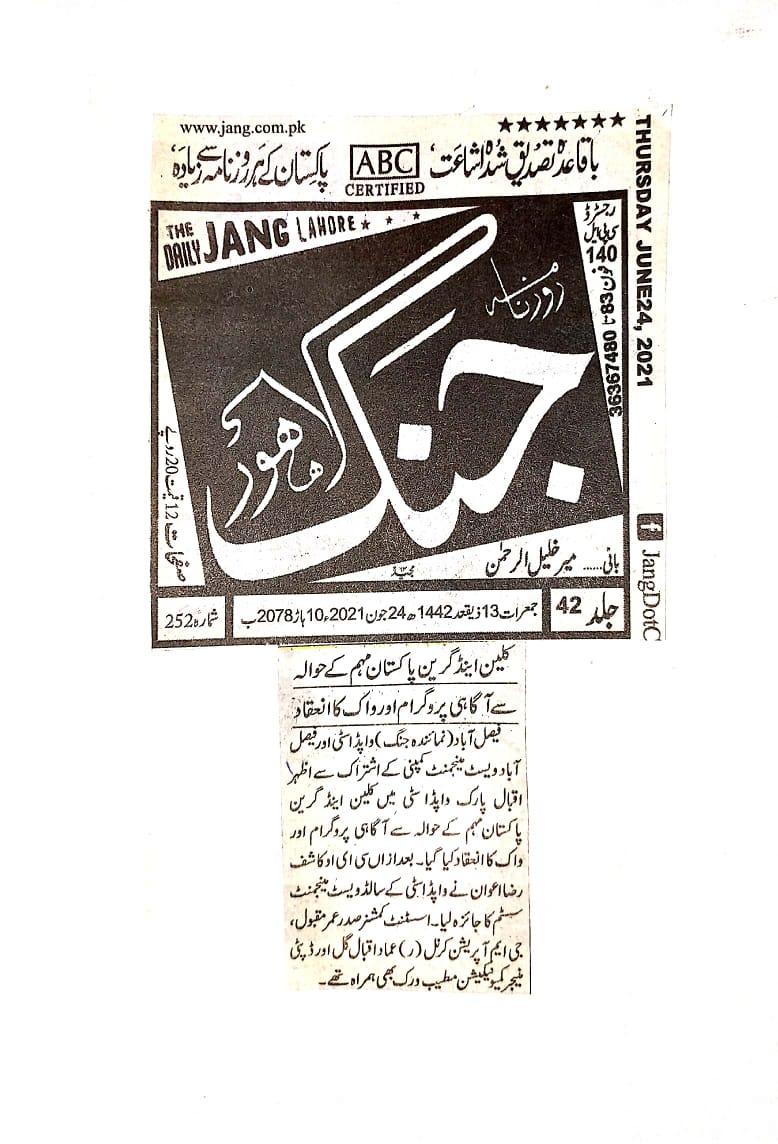 www.jang.com.pk
★★★★★★★
باقاعدہ تصدیق شدہ اشاعت،
ABC
CERTIFIED
پاکستان کے ہر روزنامہ سے زیادہ،
THURSDAY JUNE24, 2021
THE DAILY JANG LAHORE
رجسٹرڈ
سی پی ایل
140
فون 83 تا 36367480
روزنامہ
جنگ
لاہور
صفحات 12 قیمت 20 روپے
بانی...... میر خلیل الرحمٰن
JangDotC
جلد 42
جمعرات 13 ذیقعد 1442ھ 24 جون 2021ء 10 ہاڑ 2078 ب
شمارہ 252
کلین اینڈ گرین پاکستان مہم کے حوالہ
سے آگاہی پروگرام اور واک کا انعقاد
فیصل آباد (نمائندہ جنگ) واپڈا سٹی اور فیصل
آباد ویسٹ مینجمنٹ کمپنی کے اشتراک سے اظہر
اقبال پارک واپڈا سٹی میں کلین اینڈ گرین
پاکستان مہم کے حوالہ سے آگاہی پروگرام اور
واک کا انعقاد کیا گیا۔ بعد ازاں سی ای او کاشف
رضا اعوان نے واپڈا سٹی کے سالڈ ویسٹ مینجمنٹ
سسٹم کا جائزہ لیا۔ اسسٹنٹ کمشنر صدر عمر مقبول،
جی ایم آپریشن کرنل (ر) عماد اقبال گل اور ڈپٹی
منیجر کمیونیکیشن مطیب ورک بھی ہمراہ تھے۔